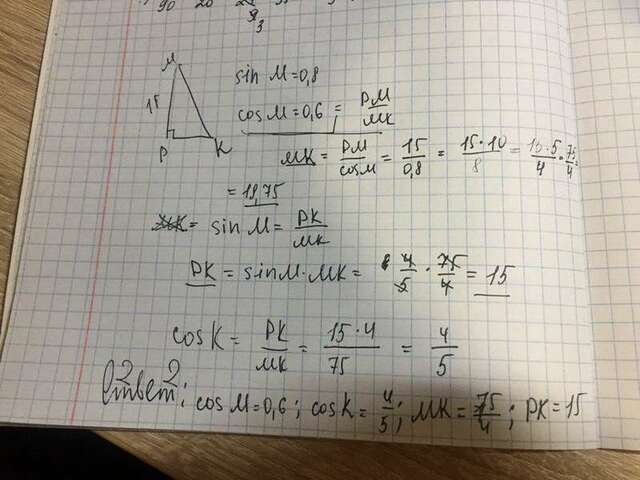 90 20
93
M
15
P
K
sin M=0,8
cos M=0,6 = PM/MK
MK = PM/cosM = 15/0,8 = 15*10/8 = 15*5/4 * 75/4 =
= 18,75
= sin M = PK/MK
PK = sinM·MK = 4/5 · 75/4 = 15
cos K = PK/MK = 15*4/75 = 4/5
Ответ: cos M=0,6; cos K=4/5; MK=75/4; PK=15